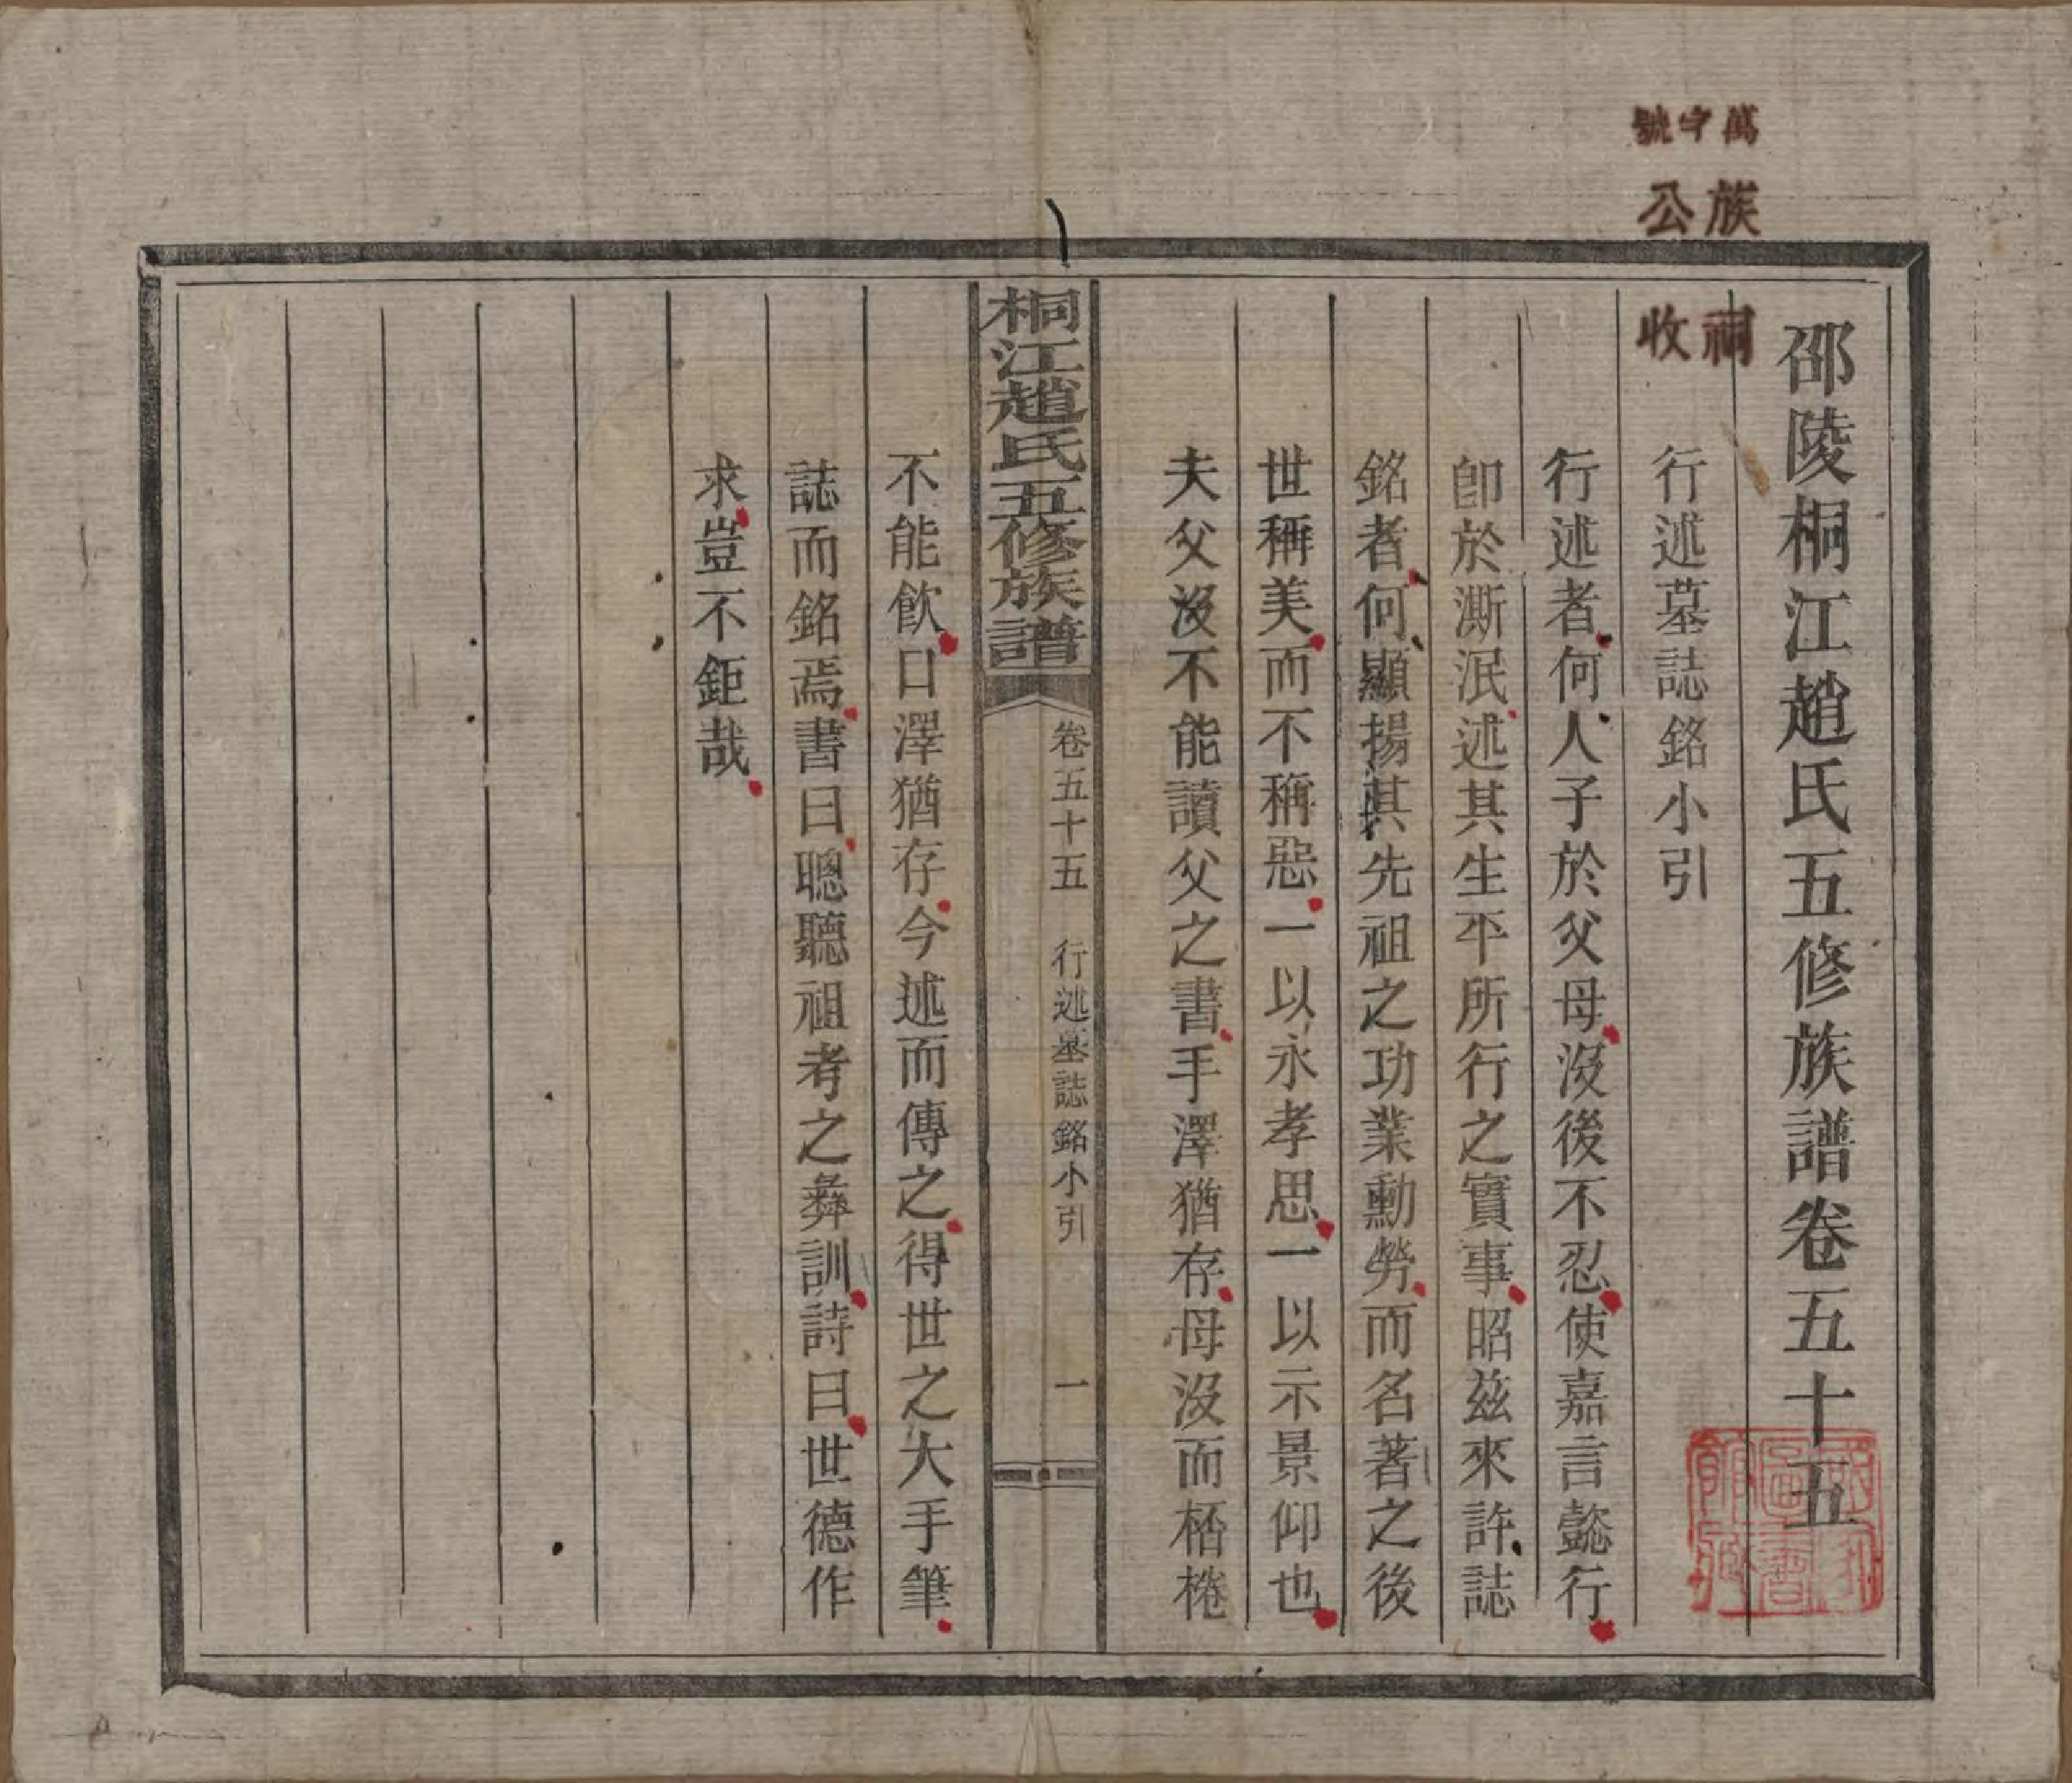 萬字號
族公
祠收
邵陵桐江趙氏五修族譜卷五十五
行述墓誌銘小引
行述者何人子於父母沒後不忍使嘉言懿行
卽於澌泯述其生平所行之實事昭兹來許誌
銘者何顯揚其先祖之功業勳勞而名著之後
世稱美而不稱惡一以永孝思一以示景仰也
夫父沒不能讀父之書手澤猶存母沒而桮棬
桐江趙氏五修族譜
卷五十五 行述墓誌銘小引 一
不能飮口澤猶存今述而傳之得世之大手筆
誌而銘焉書曰聰聽祖考之彝訓詩曰世德作
求豈不鉅哉